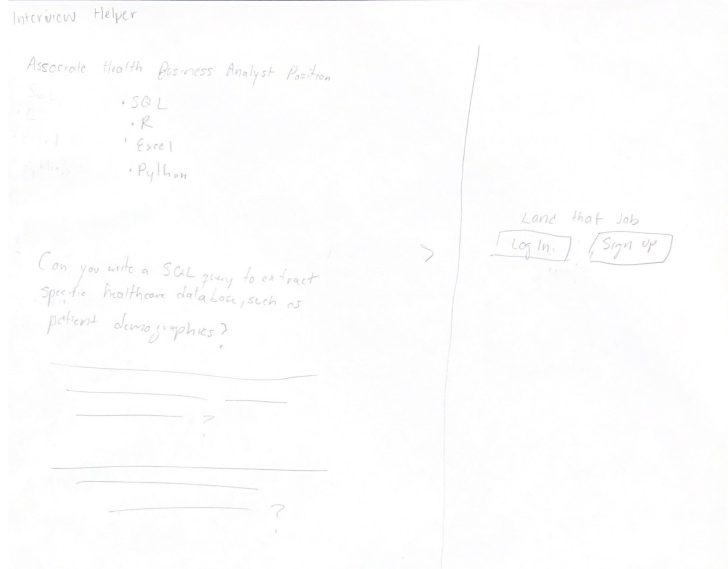 Interview Helper
Associate Health Business Analyst Position
• SQL
• R
• Excel
• Python
Can you write a SQL query to extract
specific healthcare database, such as
patient demographics?
?
?
>
Land that Job
Log In.
Sign up